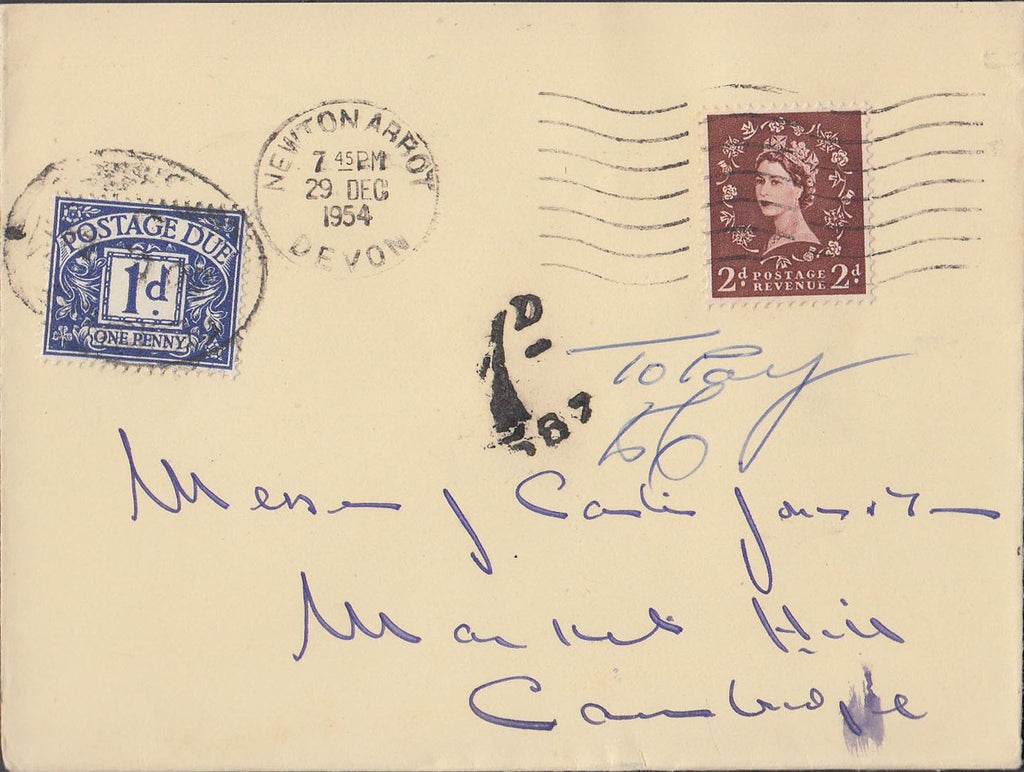 NEWTON ABBOT
7 45 PM
29 DEC
1954
DEVON
POSTAGE DUE
1d.
ONE PENNY
2d. POSTAGE REVENUE 2d.
1D
287
To Pay
Messrs J
Market Hill
Cambridge